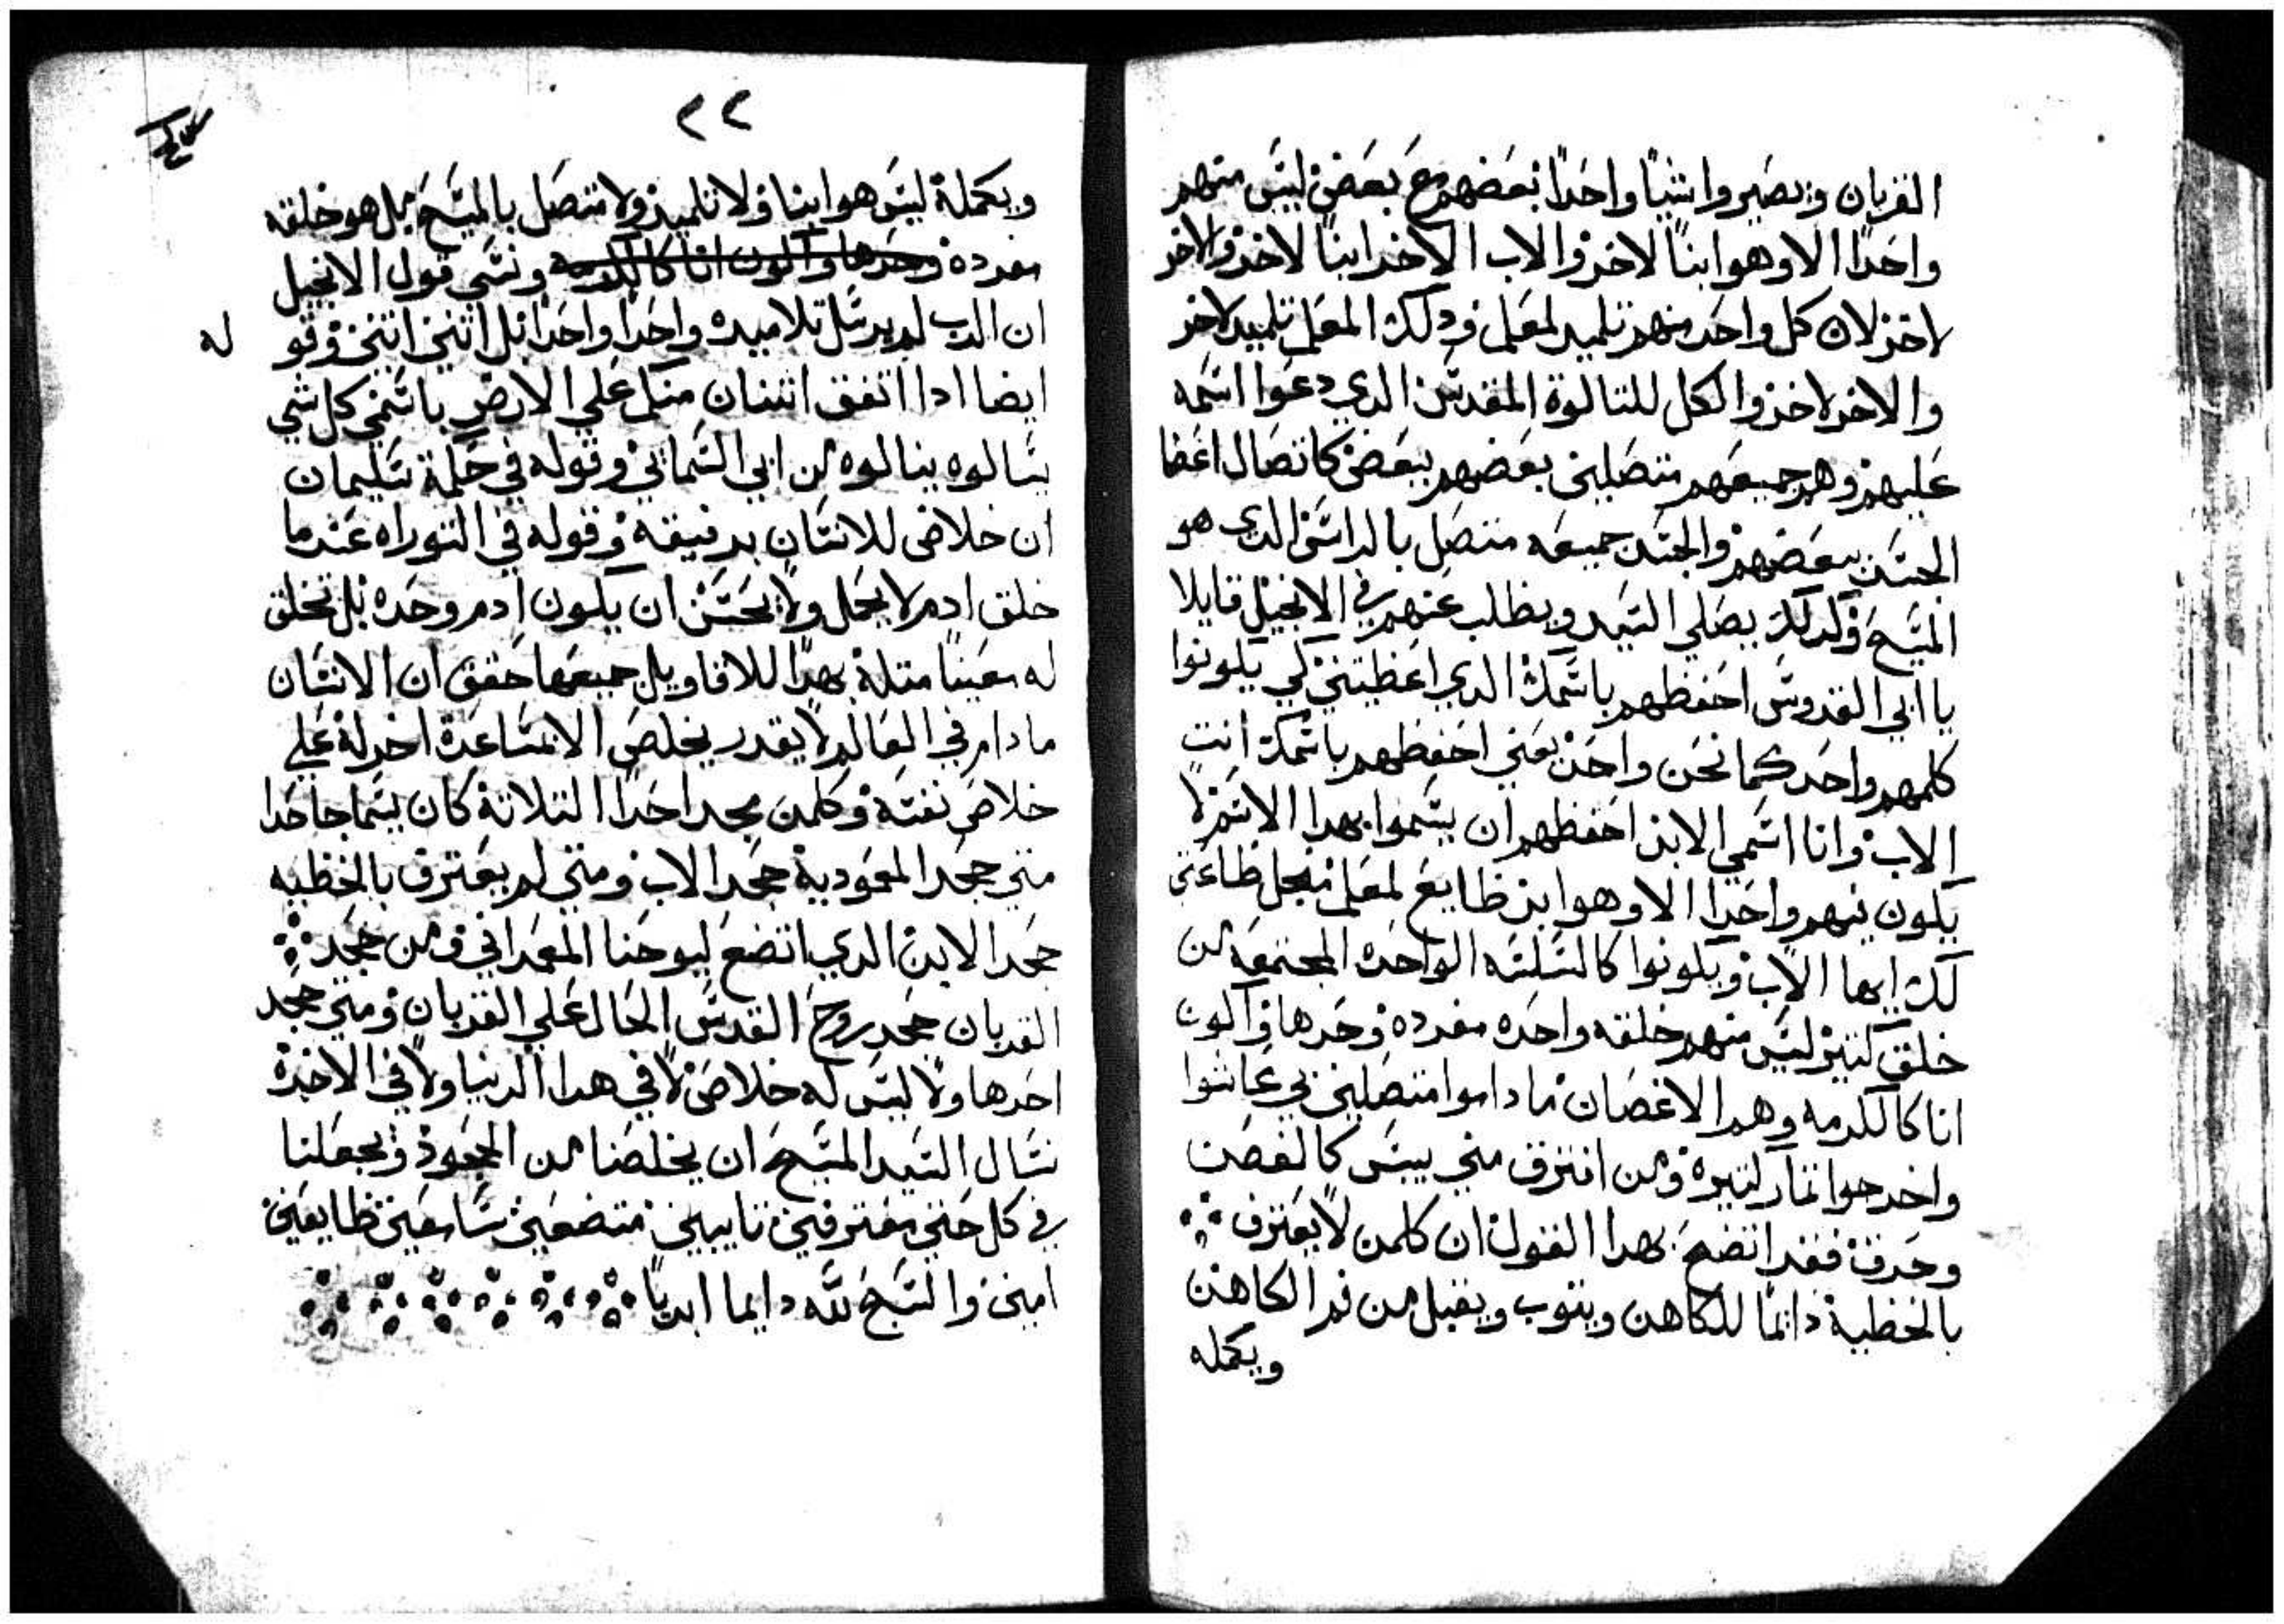 القربان ويصيروا شيا واحدا بعضهم مع بعض ليس منهم
واحدا الا وهو ابنا لاخر والاب الاخر ابنا لاخر والاخر
لاخر لان كل واحد منهم تلميد لمعلم ودلك المعلم تلميد لاخر
والاخر لاخر والكل للتالوت المقدس الدي دعوا اسمه
عليهم وهم جميعهم متصلين بعضهم ببعض كاتصال اعضا
الجسد ببعضهم والجسد جميعه متصل بالراس الدي هو
المسيح وكدلك يصلي السيد ويطلب عنهم في الانجيل قايلا
يا ابي القدوس احفظهم باسمك الدي اعطيتني كي يكونوا
كلهم واحد كما نحن واحد يعني احفظهم باسمك انت
الاب وانا اسمي الابن احفظهم ان يسموا بهدا الاسم لا
يكون فيهم واحدا الا وهو ابن طايع لمعلم مثل طاعتي
لك ايها الاب ويكونوا كالسلسله الواحده المجتمعه من
خلق كتير ليس منهم خلقه واحده مفرده وحدها واكون
انا كالكرمه وهم الاغصان ما داموا متصلين بي عاشوا
واخرجوا تمار كتيره ومن افترق مني يبس كالغصن
وحرق فقد اتضح بهدا القول ان كلمن لا يعترف
بالخطية دايما للكاهن ويتوب ويقبل من فم الكاهن
ويكمله
٢٢
ويكملة ليس هو ابنا ولا تلميد ولا متصل بالمسيح بل هو خلقه
مفرده وحدها واكون انا كالكرمه ونسي قول الانجيل
ان الرب لم يرسل تلاميده واحدا واحدا بل اتنين اتنين وقو له
ايضا ادا اتفق اتنان منكم علي الارض باسمي كل شي
يسالوه ينالوه من ابي السماني وقوله في حكمة سليمان
ان خلاص للانسان برفيقه وقوله في التوراه عندما
خلق ادم لا يحل ولا يحسن ان يكون ادم وحده بل نخلق
له معينا متله بهدا للاقاويل جميعها حقق ان الانسان
ما دام في العالم لا يقدر يخلص الا بمساعدة اخر له علي
خلاص نفسه وكلمن جحد احدا التلاتة كان يسما جاحدا
متي جحد المعمودية جحد الاب ومتي لم يعترف بالخطيه
جحد الابن الدي اتضع ليوحنا المعمداني ومن جحد
القربان جحد روح القدس الحال علي القربان ومتي جحد
احدها ولا ليس له خلاص لا في هدا الدنيا ولا في الاخرة
نسال السيد المسيح ان يخلصنا من الجحود ويجعلنا
في كل حين معترفين تايبين متضعين سامعين طايعين
امين والسبح لله دايما ابديا